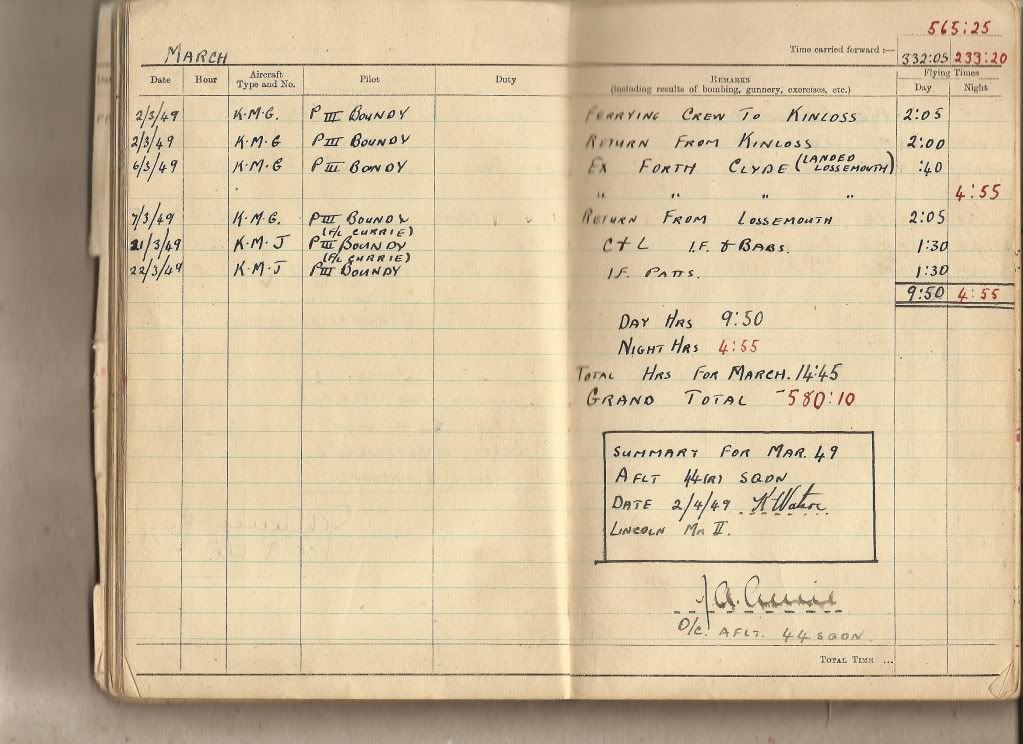 565:25
MARCH
Time carried forward :—
332:05 233:20
Date Hour Aircraft Type and No. Pilot Duty REMARKS (including results of bombing, gunnery, exercises, etc.) Flying Times Day Night
2/3/49 K·M·G. P III BOUNDY FERRYING CREW TO KINLOSS 2:05
2/3/49 K·M·G P III BOUNDY RETURN FROM KINLOSS 2:00
6/3/49 K·M·G P III BONDY EX FORTH CLYDE (LANDED LOSSEMOUTH) :40
" " " " 4:55
7/3/49 K·M·G. P III BOUNDY RETURN FROM LOSSEMOUTH 2:05
(F/L CURRIE)
21/3/49 K·M·J P III BOUNDY C+L I.F. & BABS. 1:30
(F/L CURRIE)
22/3/49 K·M·J P III BOUNDY I.F. PATTS. 1:30
9:50 4:55
DAY HRS 9:50
NIGHT HRS 4:55
TOTAL HRS FOR MARCH. 14:45
GRAND TOTAL 580:10
SUMMARY FOR MAR. 49
A FLT 44(R) SQDN
DATE 2/4/49 K Watson
LINCOLN MK II.
O/C. A FLT. 44 SQDN.
TOTAL TIME ...